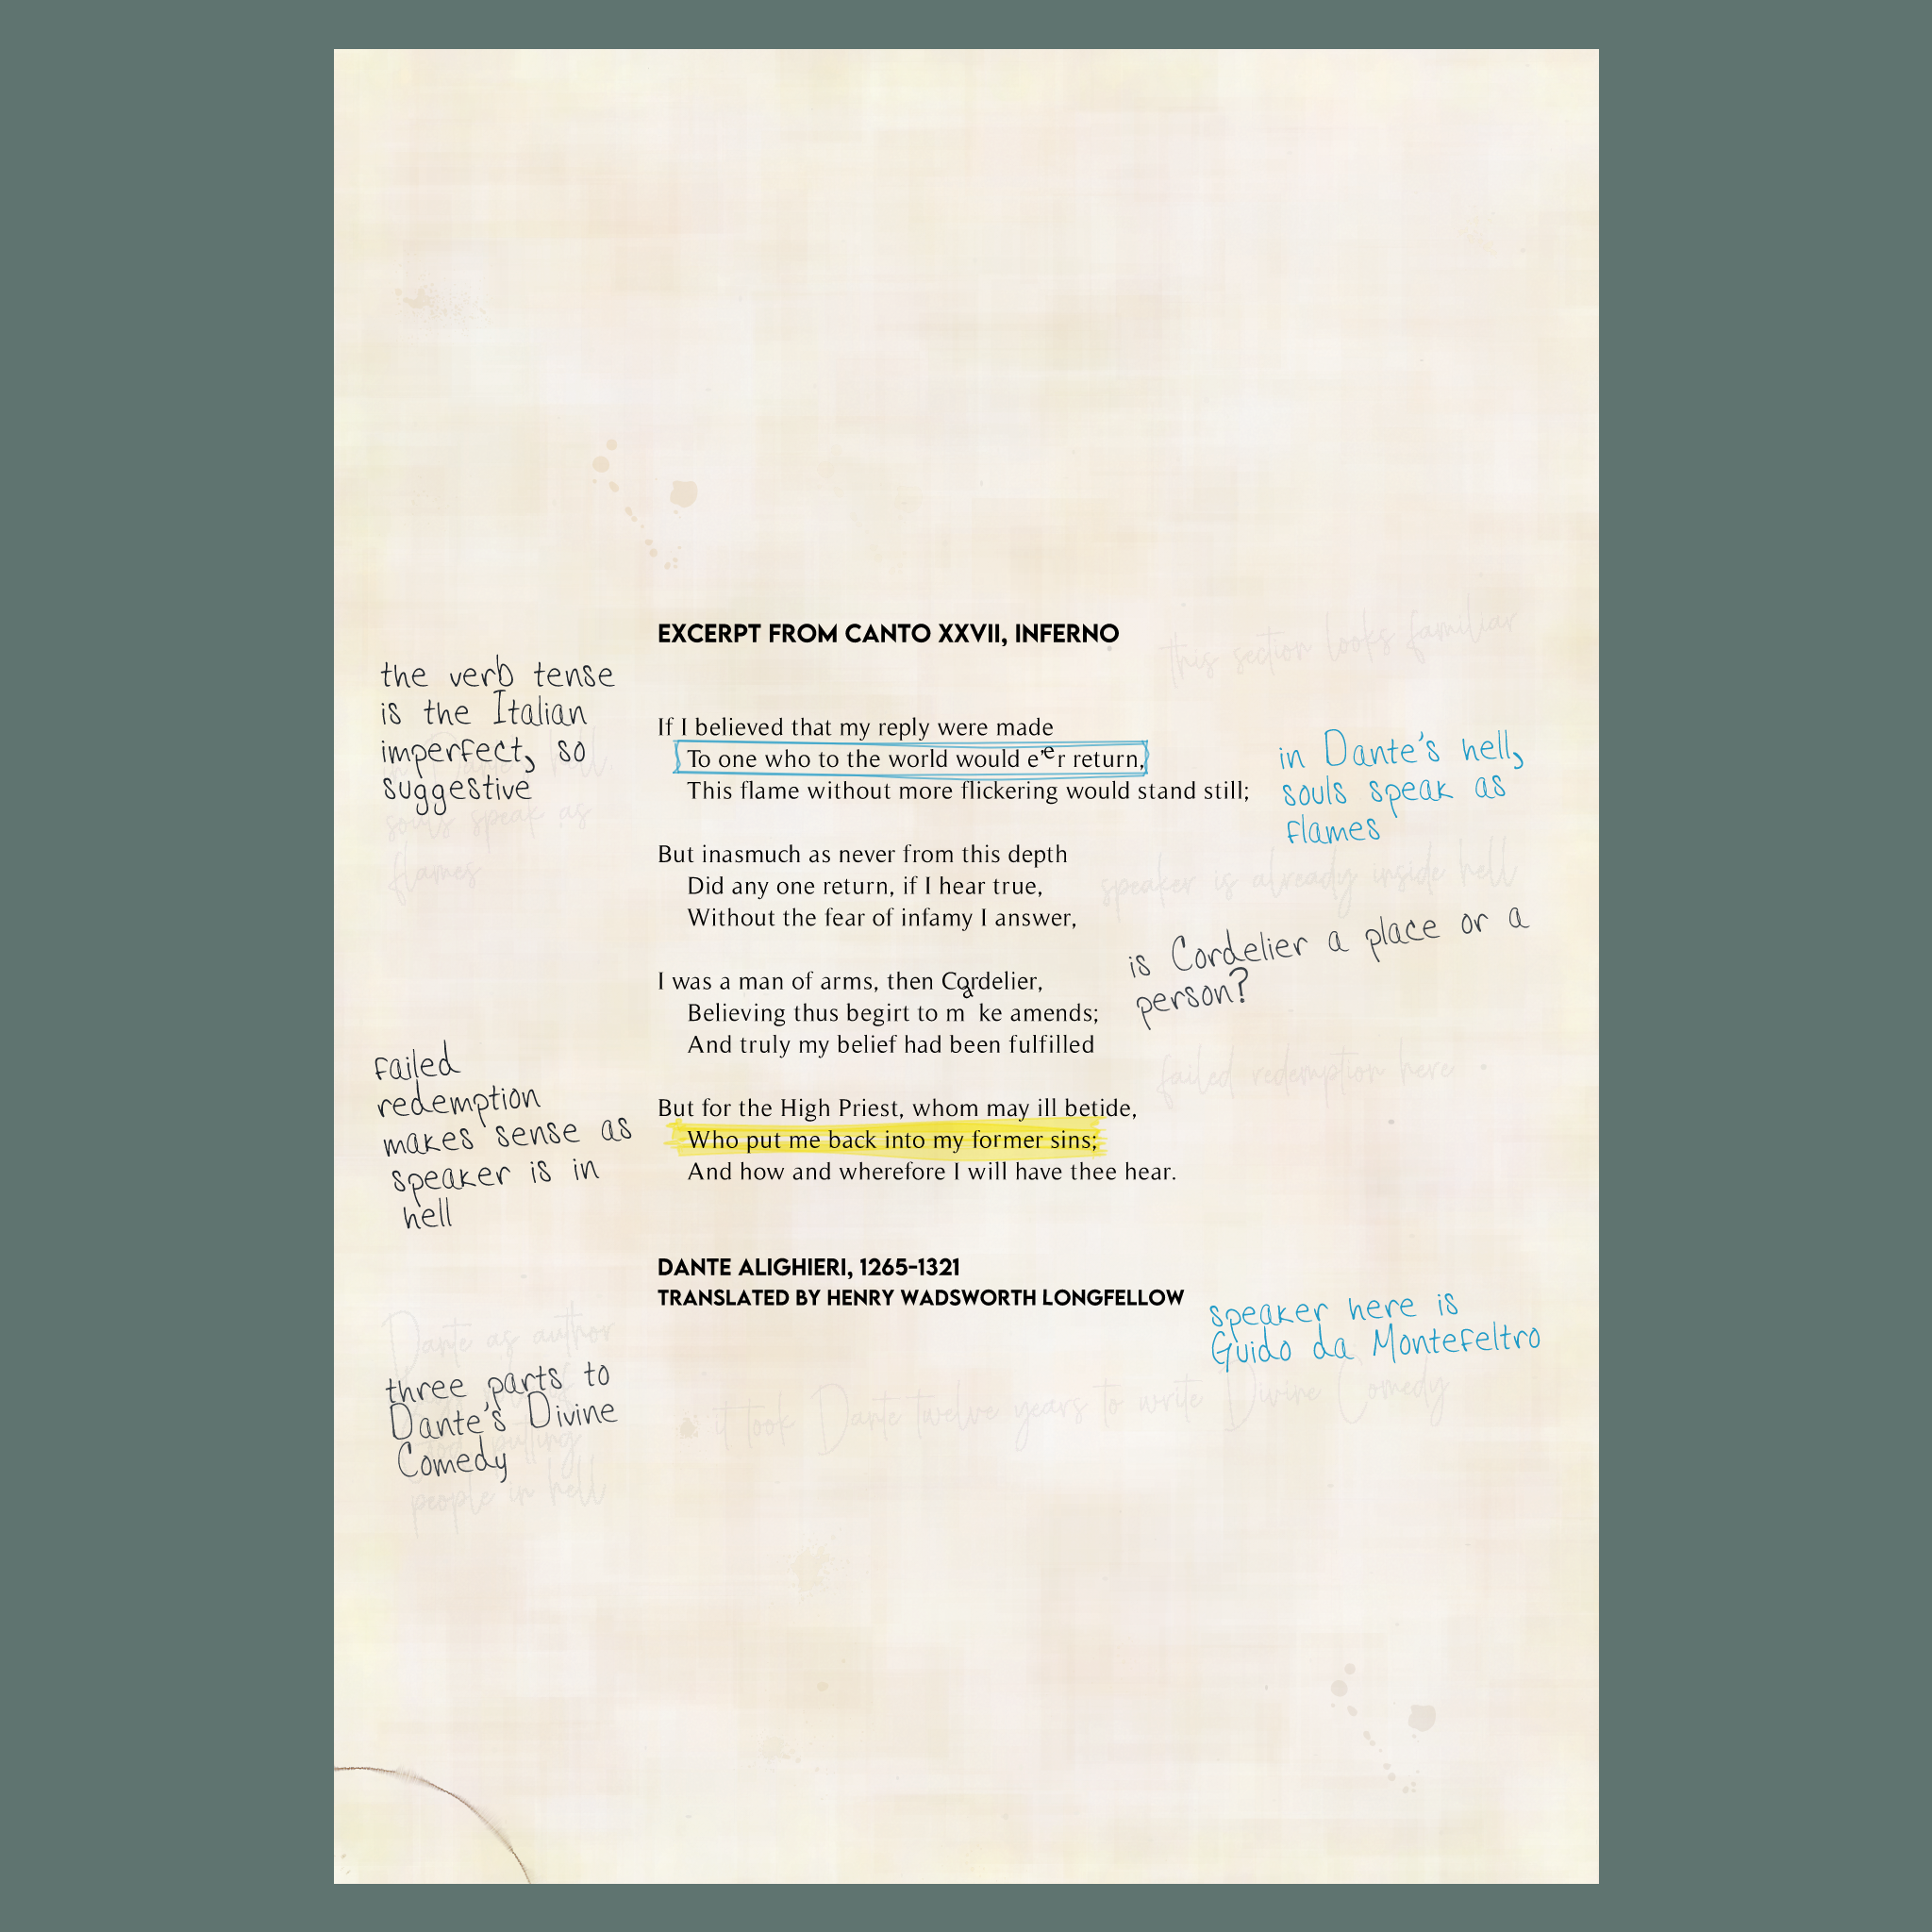 EXCERPT FROM CANTO XXVII, INFERNO
this section looks familiar
the verb tense
is the Italian
imperfect, so
suggestive
If I believed that my reply were made
To one who to the world would e'er return,
This flame without more flickering would stand still;
in Dante's hell,
souls speak as
flames
in Dante's hell
souls speak as
flames
But inasmuch as never from this depth
Did any one return, if I hear true,
Without the fear of infamy I answer,
speaker is already inside hell
is Cordelier a place or a
person?
I was a man of arms, then Cordelier,
Believing thus begirt to make amends;
And truly my belief had been fulfilled
failed redemption here
failed
redemption
makes sense as
speaker is in
hell
But for the High Priest, whom may ill betide,
Who put me back into my former sins;
And how and wherefore I will have thee hear.
DANTE ALIGHIERI, 1265-1321
TRANSLATED BY HENRY WADSWORTH LONGFELLOW
speaker here is
Guido da Montefeltro
Dante as author
putting
people in hell
three parts to
Dante's Divine
Comedy
it took Dante twelve years to write Divine Comedy